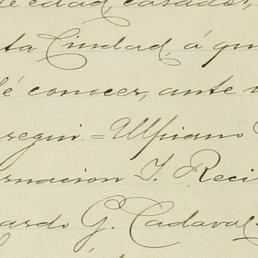 de edad, casados,
ta Ciudad, á qu
é conocer, ante
regui = Ulpiano
rnacion I. Reci
ardo G. Cadaval